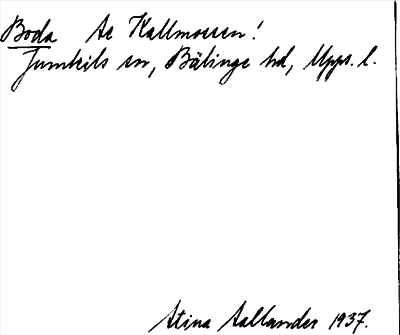 Boda Se Kallmossen!
Jumkils sn, Bälinge hd, Upps. l.
Stina Sallander 1937.